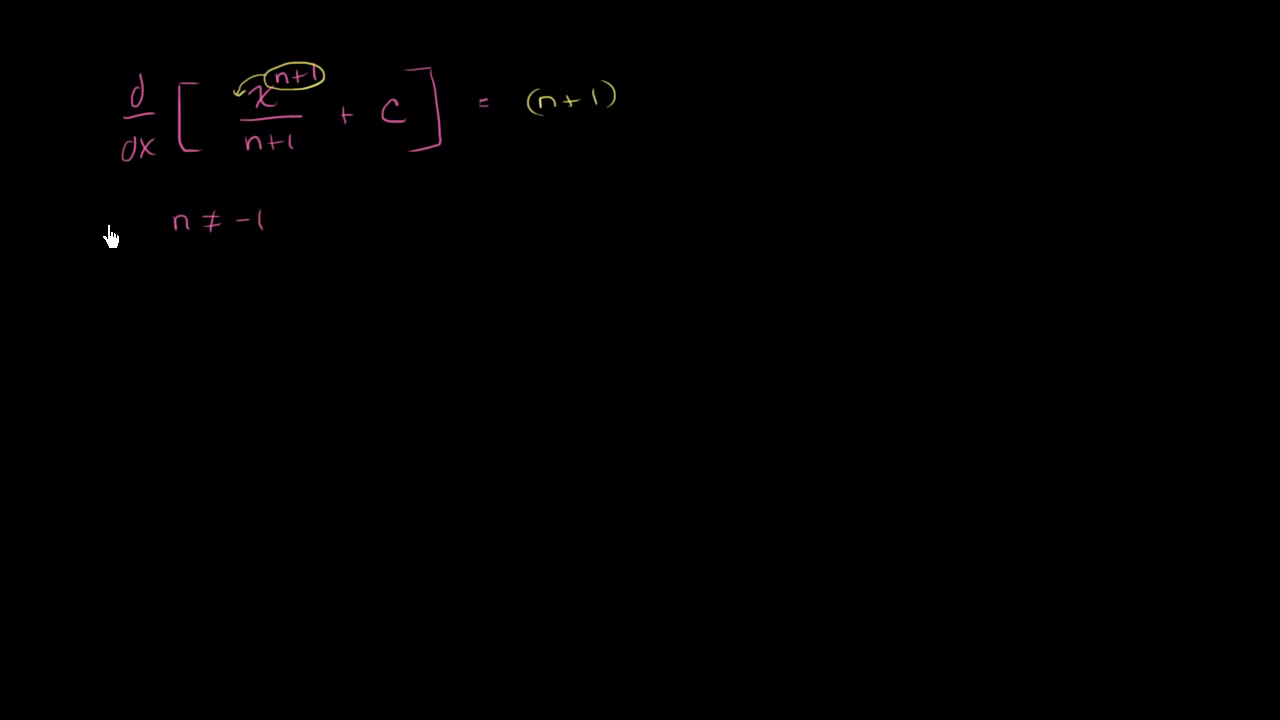 d/dx [ x^(n+1)/(n+1) + C ] = (n+1)
n ≠ -1